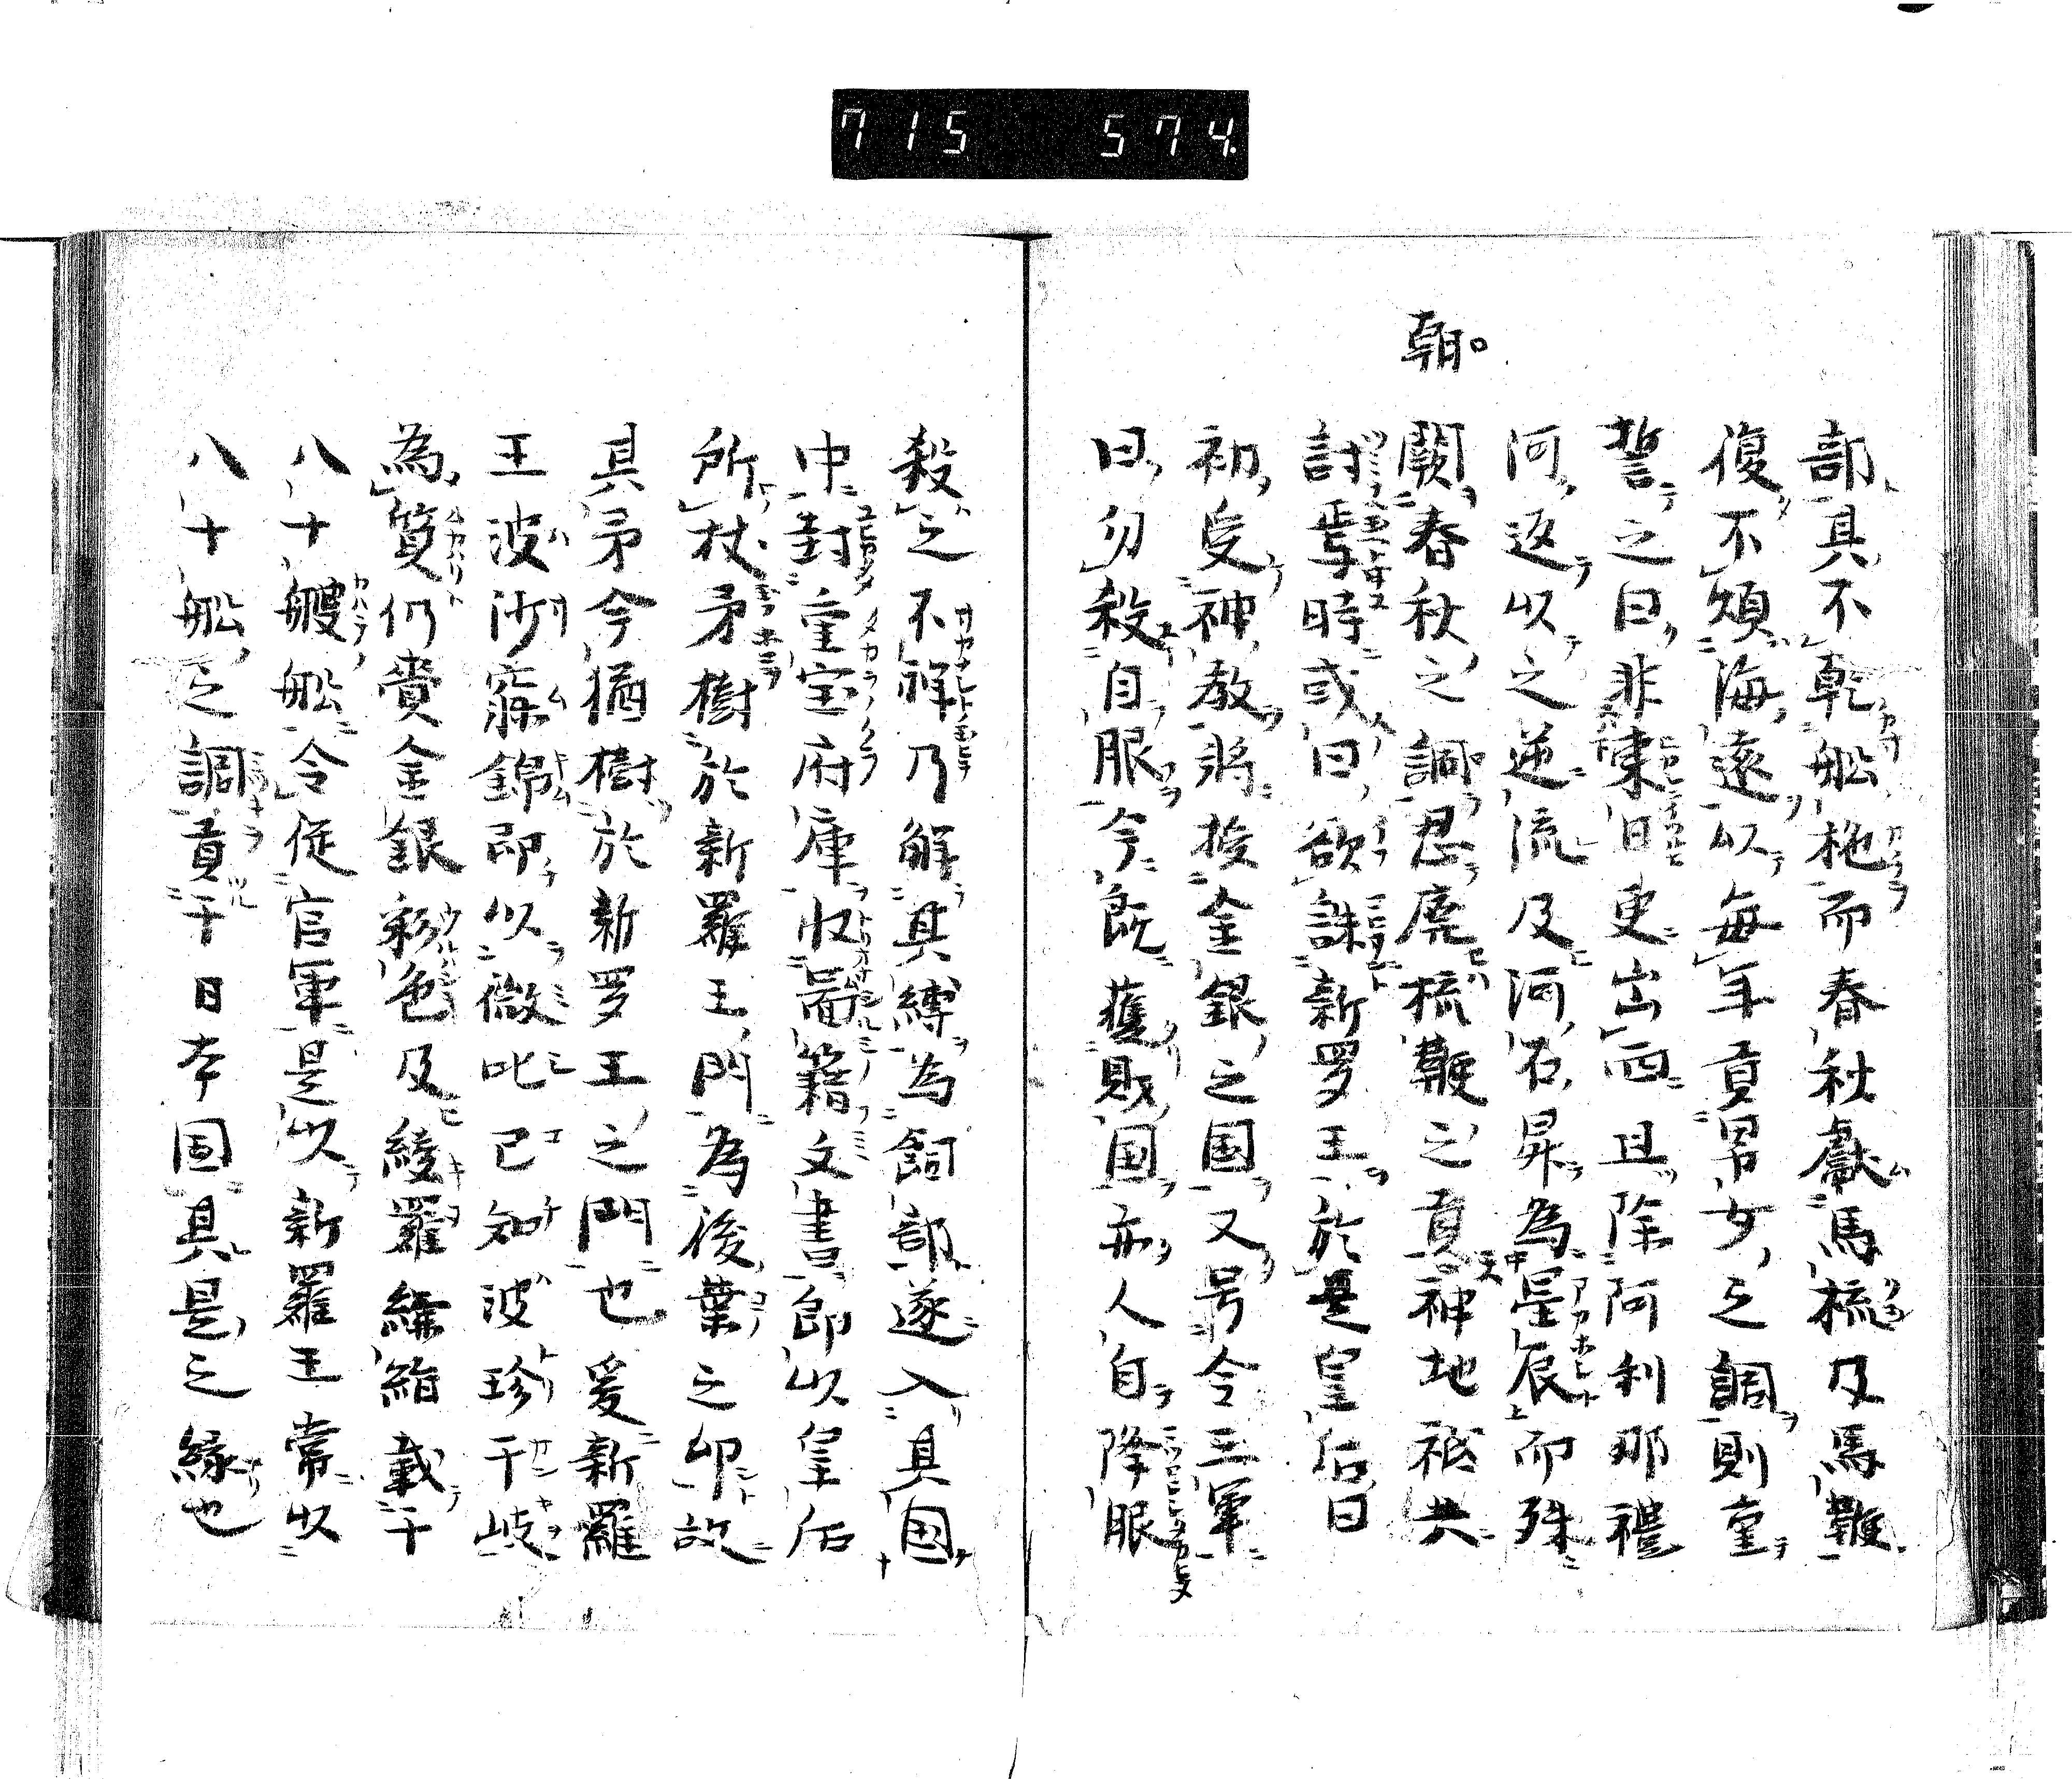 715 574.
部其不乾舩柂而春秋獻馬梳及馬鞭
復不煩海遠以毎年貢男女之調則重
誓之曰非東日更出西且除阿利那禮
河返以之逆流及河石昇為星辰而殊
朝。
闕春秋之調忍廃梳鞭之貢。天神地祇共
討焉時或曰欲誅新罗王於是皇后曰
初受神教将授金銀之国又号令三軍
曰勿殺自服今既獲財国亦人自降服
殺之不祥乃解其縛為飼部遂入其国
中封重宝府庫收圖籍文書即以皇后
所杖矛樹於新羅王門為後葉之印故
其矛今猶樹於新罗王之門也爰新羅
王波沙寐錦即以微叱己知波珍干岐
為質仍賷金銀彩色及綾羅縑絹載于
八十艘舩令従官軍是以新羅王常以
八十舩之調貢于日本国其是之縁也